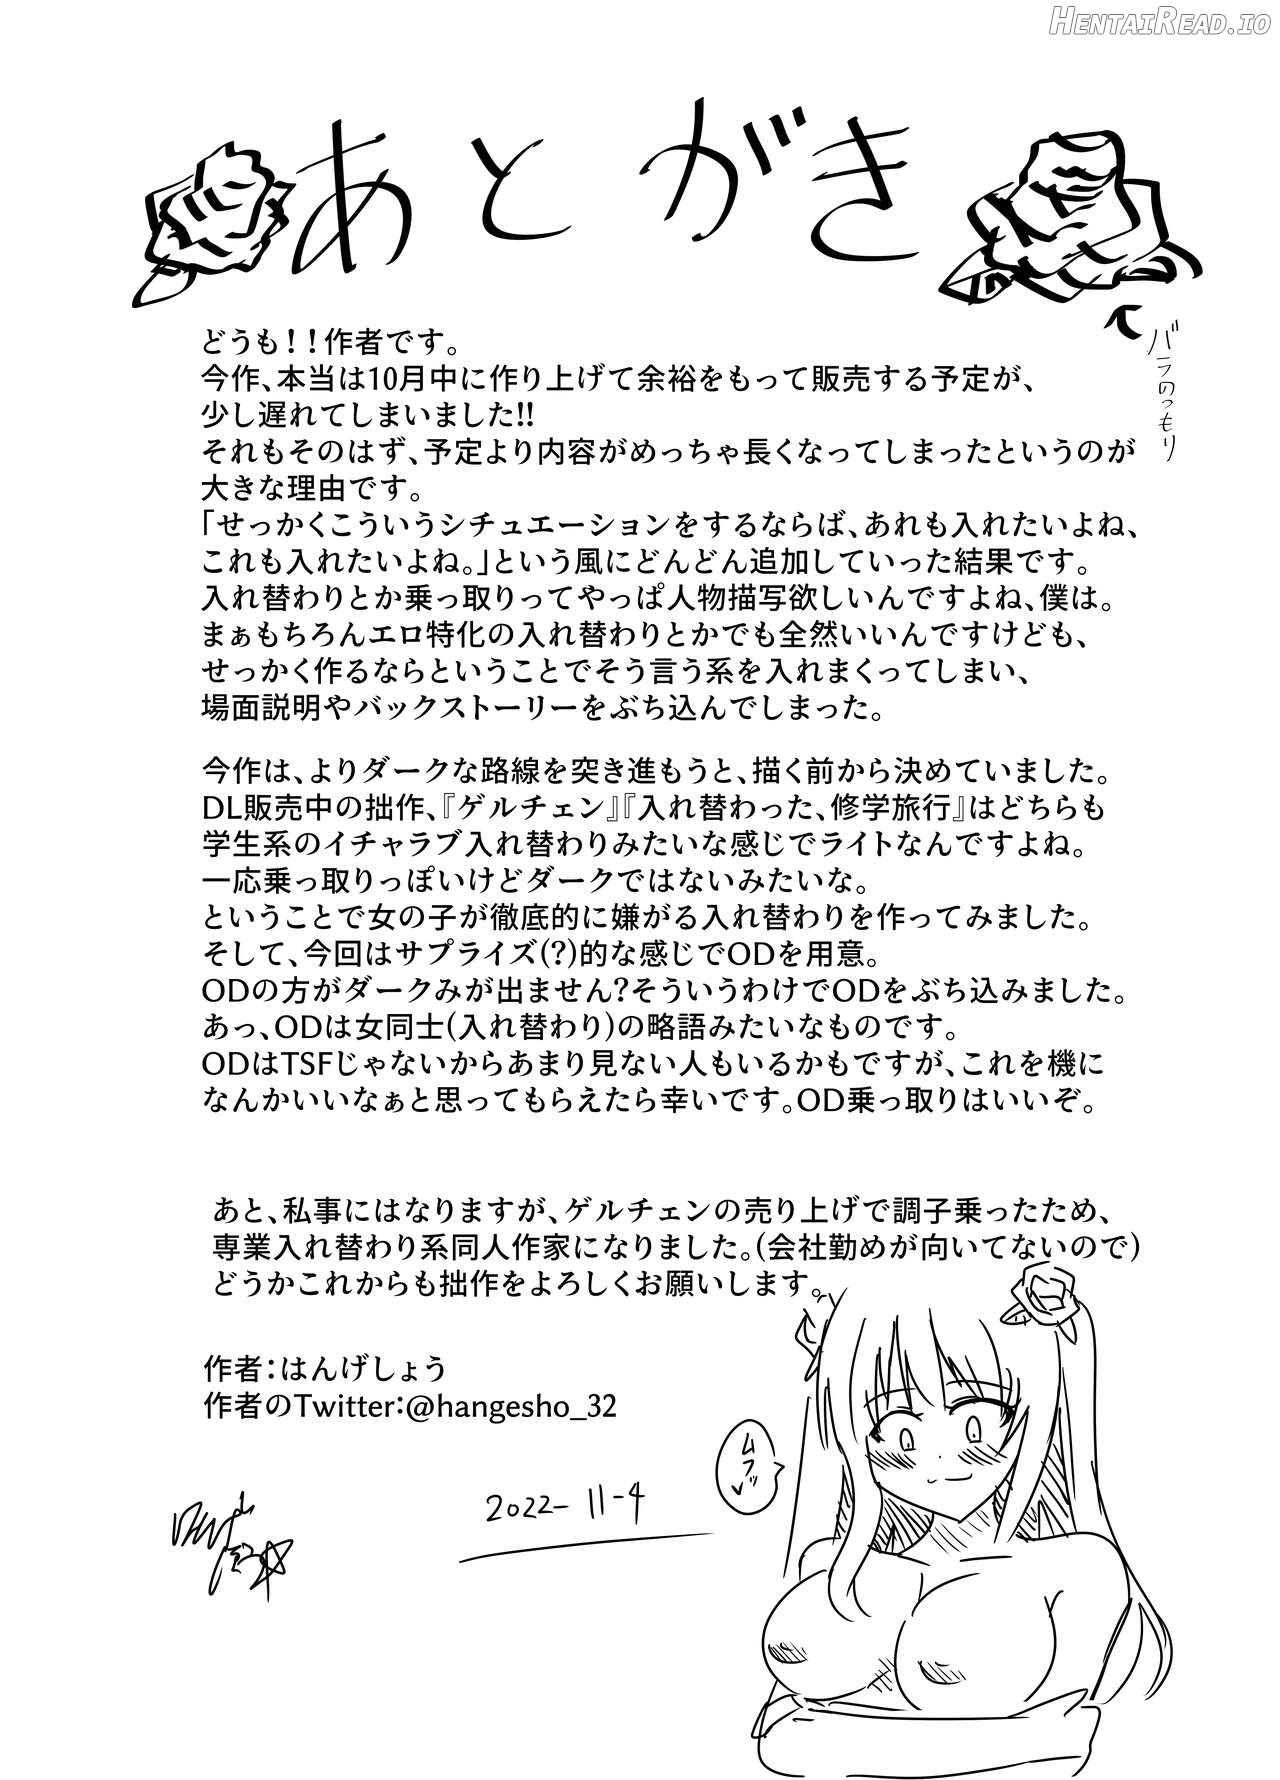 HENTAIREAD.IO
あとがき
バラのつもり
どうも！！作者です。
今作、本当は10月中に作り上げて余裕をもって販売する予定が、
少し遅れてしまいました!!
それもそのはず、予定より内容がめっちゃ長くなってしまったというのが
大きな理由です。
「せっかくこういうシチュエーションをするならば、あれも入れたいよね、
これも入れたいよね。」という風にどんどん追加していった結果です。
入れ替わりとか乗っ取りってやっぱ人物描写欲しいんですよね、僕は。
まぁもちろんエロ特化の入れ替わりとかでも全然いいんですけども、
せっかく作るならということでそう言う系を入れまくってしまい、
場面説明やバックストーリーをぶち込んでしまった。
今作は、よりダークな路線を突き進もうと、描く前から決めていました。
DL販売中の拙作、『ゲルチェン』『入れ替わった、修学旅行』はどちらも
学生系のイチャラブ入れ替わりみたいな感じでライトなんですよね。
一応乗っ取りっぽいけどダークではないみたいな。
ということで女の子が徹底的に嫌がる入れ替わりを作ってみました。
そして、今回はサプライズ(?)的な感じでODを用意。
ODの方がダークみが出ません?そういうわけでODをぶち込みました。
あっ、ODは女同士(入れ替わり)の略語みたいなものです。
ODはTSFじゃないからあまり見ない人もいるかもですが、これを機に
なんかいいなぁと思ってもらえたら幸いです。OD乗っ取りはいいぞ。
あと、私事にはなりますが、ゲルチェンの売り上げで調子乗ったため、
専業入れ替わり系同人作家になりました。(会社勤めが向いてないので)
どうかこれからも拙作をよろしくお願いします。
作者：はんげしょう
作者のTwitter:@hangesho_32
ムフッ
2022-11-4